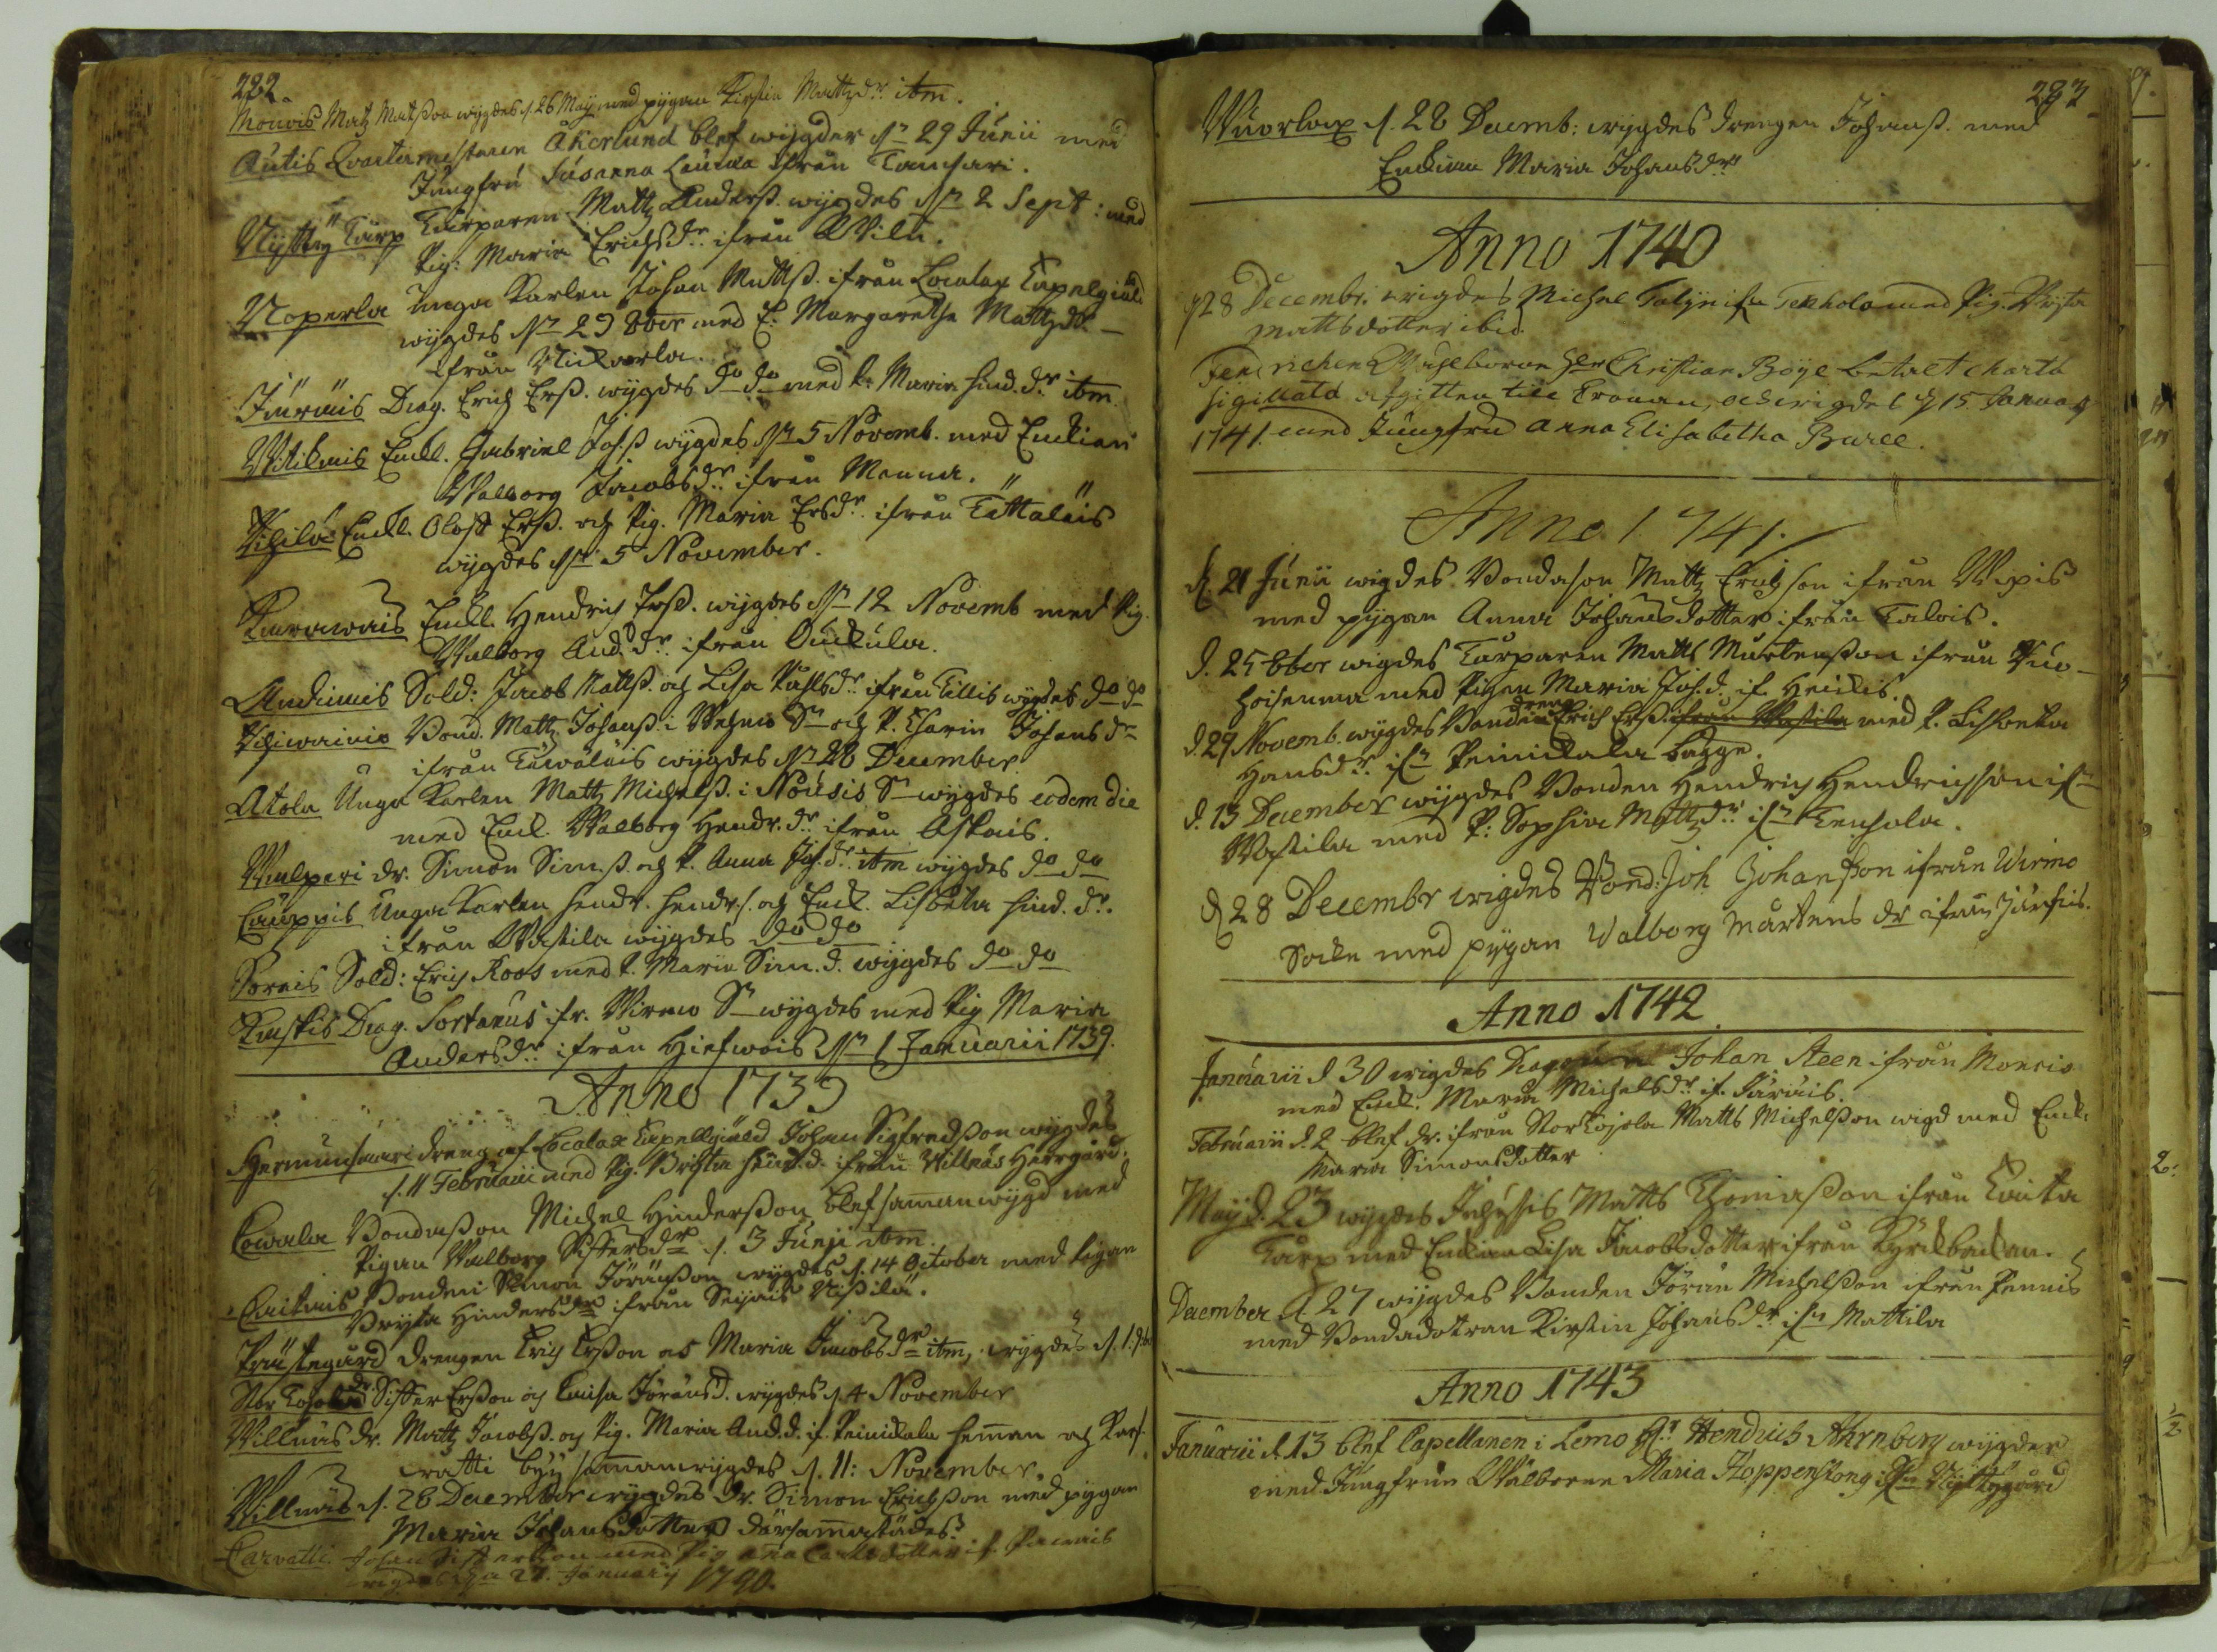 282.
Monois Matz Matzson wygdes d. 26 Maij med pygan Kirstin Mattzdr. itm.
Autis Qvartermestaren Åkerlund blef wygder dn 29 Junii med
Jungfru Susanna Lauræa ifrån Tamsari.
Nystby Tårp Tårparen Mattz Anderss. wygdes dn 2 Sept: med
Pig: Maria Erichsdr. ifrån
Noperla Unga Karlen Johan Mattss. ifrån Localax Capelgiäld
wygdes dn 29 8ber med E: Margaretha Mattzdr.
ifrån Nickarla.
Järnäis Drag. Erich Erss. wygdes do do med P. Maria Hind.dr. itm.
Wilikais Enkl. Gabriel Johss wygdes dn 5 Novemb. med Enkian
Walborg Jacobsdr. ifrån Manna.
Enkl. Oloff Erss. och Pig. Maria Ersdr. ifrån Tättäläis
wygdes dn 5 November.
Kurawais Enkl. Hendrich Erss. wygdes dn 12 Novemb med Pig.
Walborg And.dr. ifrån Ouckula.
Sold: Jacob Mattss. och Lisa Påhlsdr ifrån Killis wygdes do do
Bond. Mattz Johanss. i Wehmo Sn och P. Charin Johansdr
ifrån wygdes dn 28 December
Atola Unga Karlen Mattz Michelss. i Nousis Sn wygdes eodem die
med Enck. Walborg Hendr.dr. ifrån Askais.
Walperi dr. Simon Sim.ss och P. Anna Joh.dr. itm wygdes do do
Lauppis Unga Karlen Hendr. Hendrs. och Enck. Lisbeta Hind.dr.
ifrån Wastila wygdes do do
Sorais Sold: Erich Roos med P. Maria Sim.d. wygdes do do
Kuskis Drag. Sortanus ifr. Wirmo Sn wygdes med Pig Maria
Andersdr. ifrån Hiefwois dn 1 Januarii 1739.
Anno 1739
Hermunsaari dreng af Localax Capellgiäld Johan Sigfredsson wygdes
d. 11 Februarii med Pig. Brista Hind.d. ifrån Willnäs Herrgård.
Lowala Bondasson Michel Hindersson blef samanwygd med
Pigan Walborg Siffersdr d. 3 Junii itm.
Laitais Bonden Simon Jöransson wygdes d. 14 October med Pigan
Bryta Hindersdr ifrån Seijais Nissilä.
Prästegård Drengen Erich Ersson oc Maria Jacobsdr itm, wygdes d. 1.
Stor Kojola dr. Siffer Ersson oc Caisa Jöransd. wygdes d. 4 November
Willnäs dr. Mattz Jacobss. oc Pig. Maria And.d. if. Peinickala heman och Kar-
watti by samanwygdes d. 11: November.
Willnäs d. 26 December wygdes dr. Simon Erichsson med pygan
Maria Johansdotter därsammastädes.
Carvatti Johan Siffersson med Pig Anna Carlsdotter if. Panais
wigdes d. 27. January 1740.
283
Wuorlax d. 28 Decemb: wygdes drengen Johanss. med
Enkian Maria Johansdr
Anno 1740
d 28 Decembr. wigdes Michel ifn Tekhola med Pig. Bryta
Mattsdotter ibid.
Fendrichen Wählborne Hr Christian Böye betalt charta
sigillata afgiften till Cronan, och wigdes d 15 January
1741. med Jungfru Anna Elisabetha Buree.
Anno 1741.
d. 21 Junii wigdes Bondason Mattz Erichson ifrån Wipis
med pygan Anna Johansdotter ifrån Talois.
d. 25 8ber wigdes Tårparen Matts Mårtensson ifrån Wuo-
hoisenma med Pigan Maria Joh.d. if Heickis.
d. 29 Novemb. wygdes Bonden drengen Erich Erss. ifrån Wastila med P. Lisbeta
Hansdr. ifn Peinickala bagge.
d. 13 December wygdes Bonden Hendrich Hendrichsson ifn
Wastila med P: Sophia Mattzdr. ifn Tenhola.
d 28 Decembr wigdes Bond: Joh Johansson ifrån Wirmo
Sockn med pygan Walborg Mårtens dr ifrån Järfis.
Anno 1742
Januarii d 30 wigdes Dragoun Johan Steen ifrån Monois
med Enck. Maria Michelsdr. if. Järnäis.
Februarii d. 2 blef dr. ifrån Storkojola Matts Michelsson wigd med Enck.
Maria Simonsdotter
Maij d. 23 wygdes Inhyses Matts Thomasson ifrån Laita
Tårp med Enkian Lisa Jacobsdotter ifrån Kyrckbackan.
December d. 27 wygdes Bonden Jöran Michelsson ifrån Pennis
med Bondadottran Kirstin Johansdr ifn Mattila
Anno 1743
Januarii d. 13 blef Capellanen i Lemo Hr. Hendrich Ahrnberg wygder
med Jungfrun Wälborne Maria Stoppenstong ifn Nystbygård